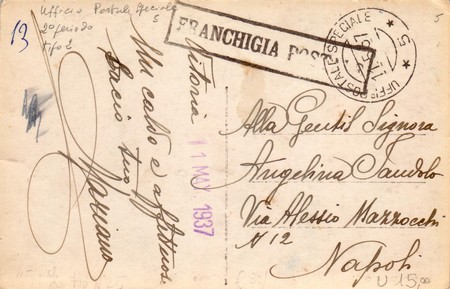 Ufficio Postale Speciale
5
2° periodo
tipo 2
13
FRANCHIGIA POST
UFFICIO POSTALE SPECIALE
* 5 *
5
Vitoria
11 MAG 1937
Un caldo e affettuoso
bacio tuo
Mariano
Alla Gentil Signora
Angelina Tandolo
Via Alessio Mazzocchi
N 12
Napoli
U 15,00